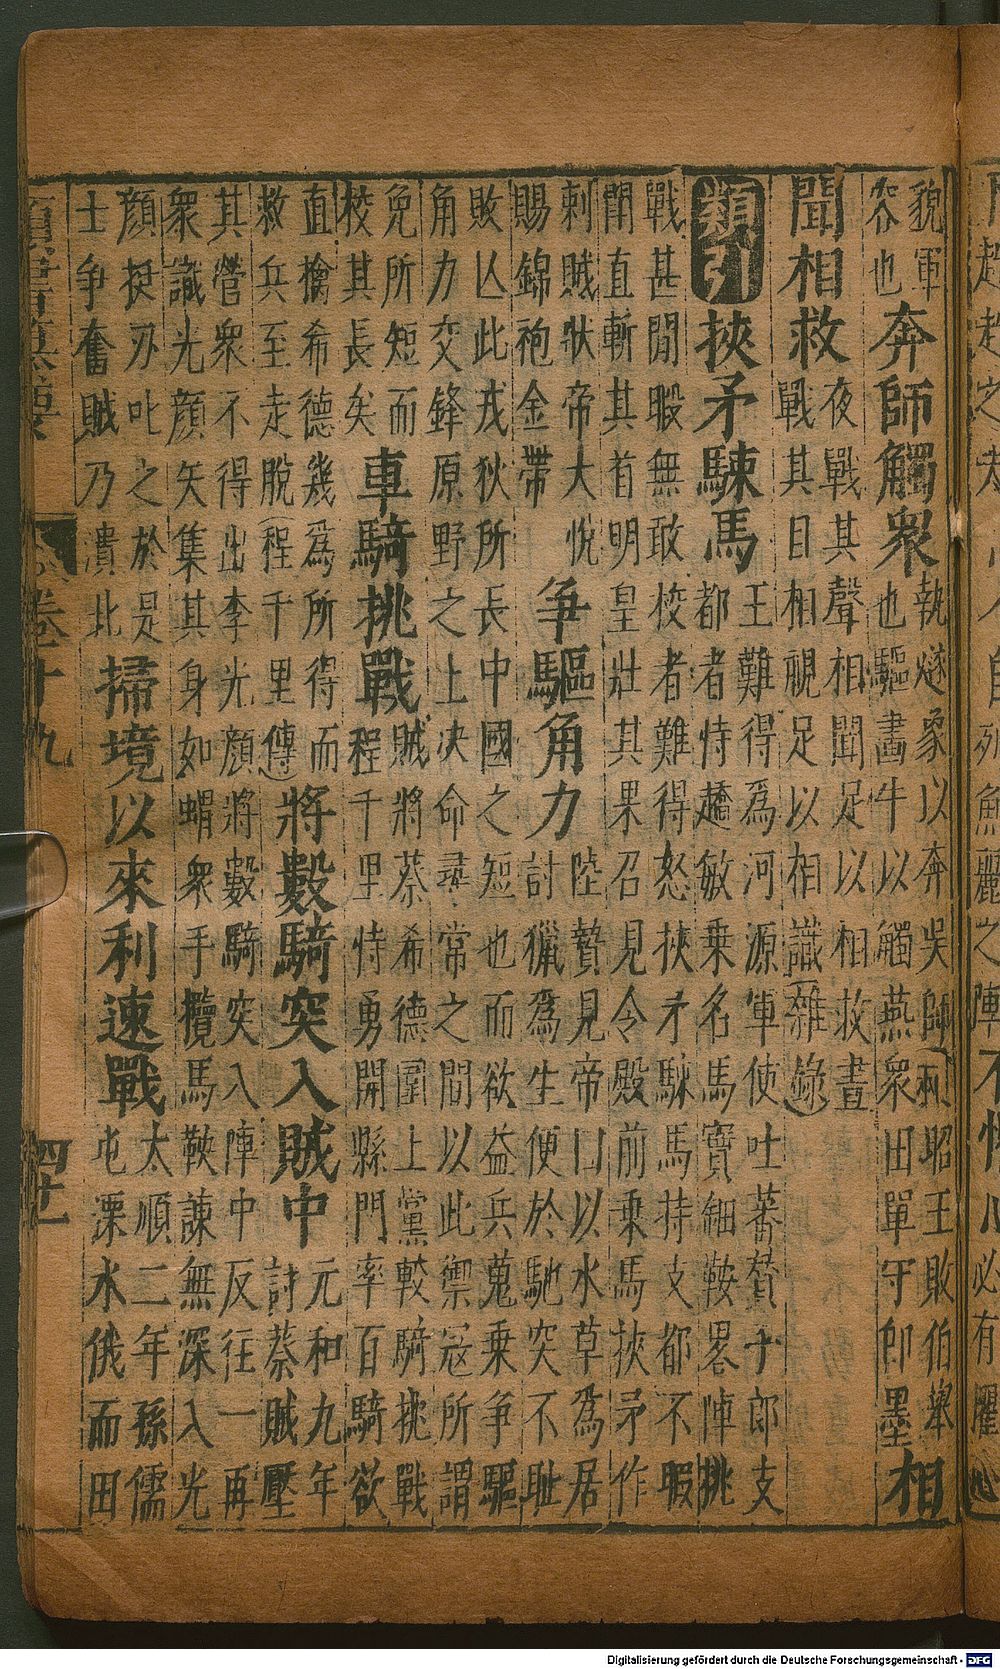 貌軍
容也
奔師觸衆
執燧象以奔吳師昭王敗伯舉
也驅畫牛以觸燕衆田單守即墨
相
聞相救
夜戰其聲相聞足以相救晝
戰其目相視足以相識(雜錄)
類引
挾矛騋馬
王難得爲河源軍使吐蕃贊于郎支
都者恃趫敏乗名馬寶鈿鞍畧陣挑
戰甚閒暇無敢校者難得怒挾矛騋馬持支都不暇
鬭直斬其首明皇壯其果召見令殿前乗馬挾矛作
刺賊狀帝大悅
賜錦袍金帶
爭驅角力
陸贄見帝曰以水草爲居
討獵爲生便於馳突不耻
敗亾此戎狄所長中國之短也而欲益兵蒐乗争驅
角力交鋒原野之上决命尋常之間以此禦寇所謂
免所短而
校其長矣
車騎挑戰
賊將蔡希德圍上黨輕騎挑戰
程千里恃勇開縣門率百騎欲
直擒希德幾爲所得而
救兵至走脫(程千里傳)
將數騎突入賊中
元和九年
討蔡賊壓
其營衆不得出李光顔將數騎突入陣中反往一再
衆識光顔矢集其身如蝟衆手攬馬鞅諫無深入光
顔挺刃叱之於是
士争奮賊乃潰北
掃境以來利速戰
太順二年孫儒
屯溧水俄而田
卷十九
四十一
Digitalisierung gefördert durch die Deutsche Forschungsgemeinschaft - DFG